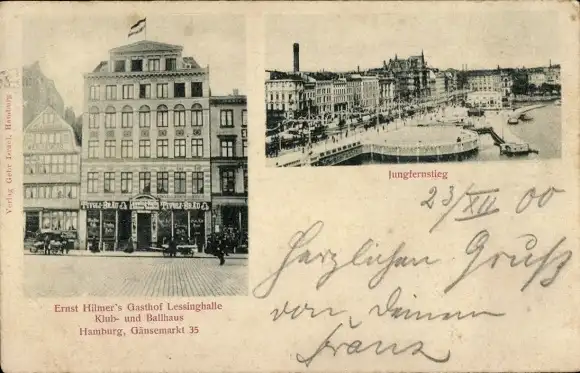 Verlag Gebr. Isenel, Hamburg
TIVOLI-BRÄU
TIVOLI-BRÄU
Ernst Hilmer's Gasthof Lessinghalle
Klub- und Ballhaus
Hamburg, Gänsemarkt 35
Jungfernstieg
23/XII 00
Herzlichen Gruß
von Deinem
Franz